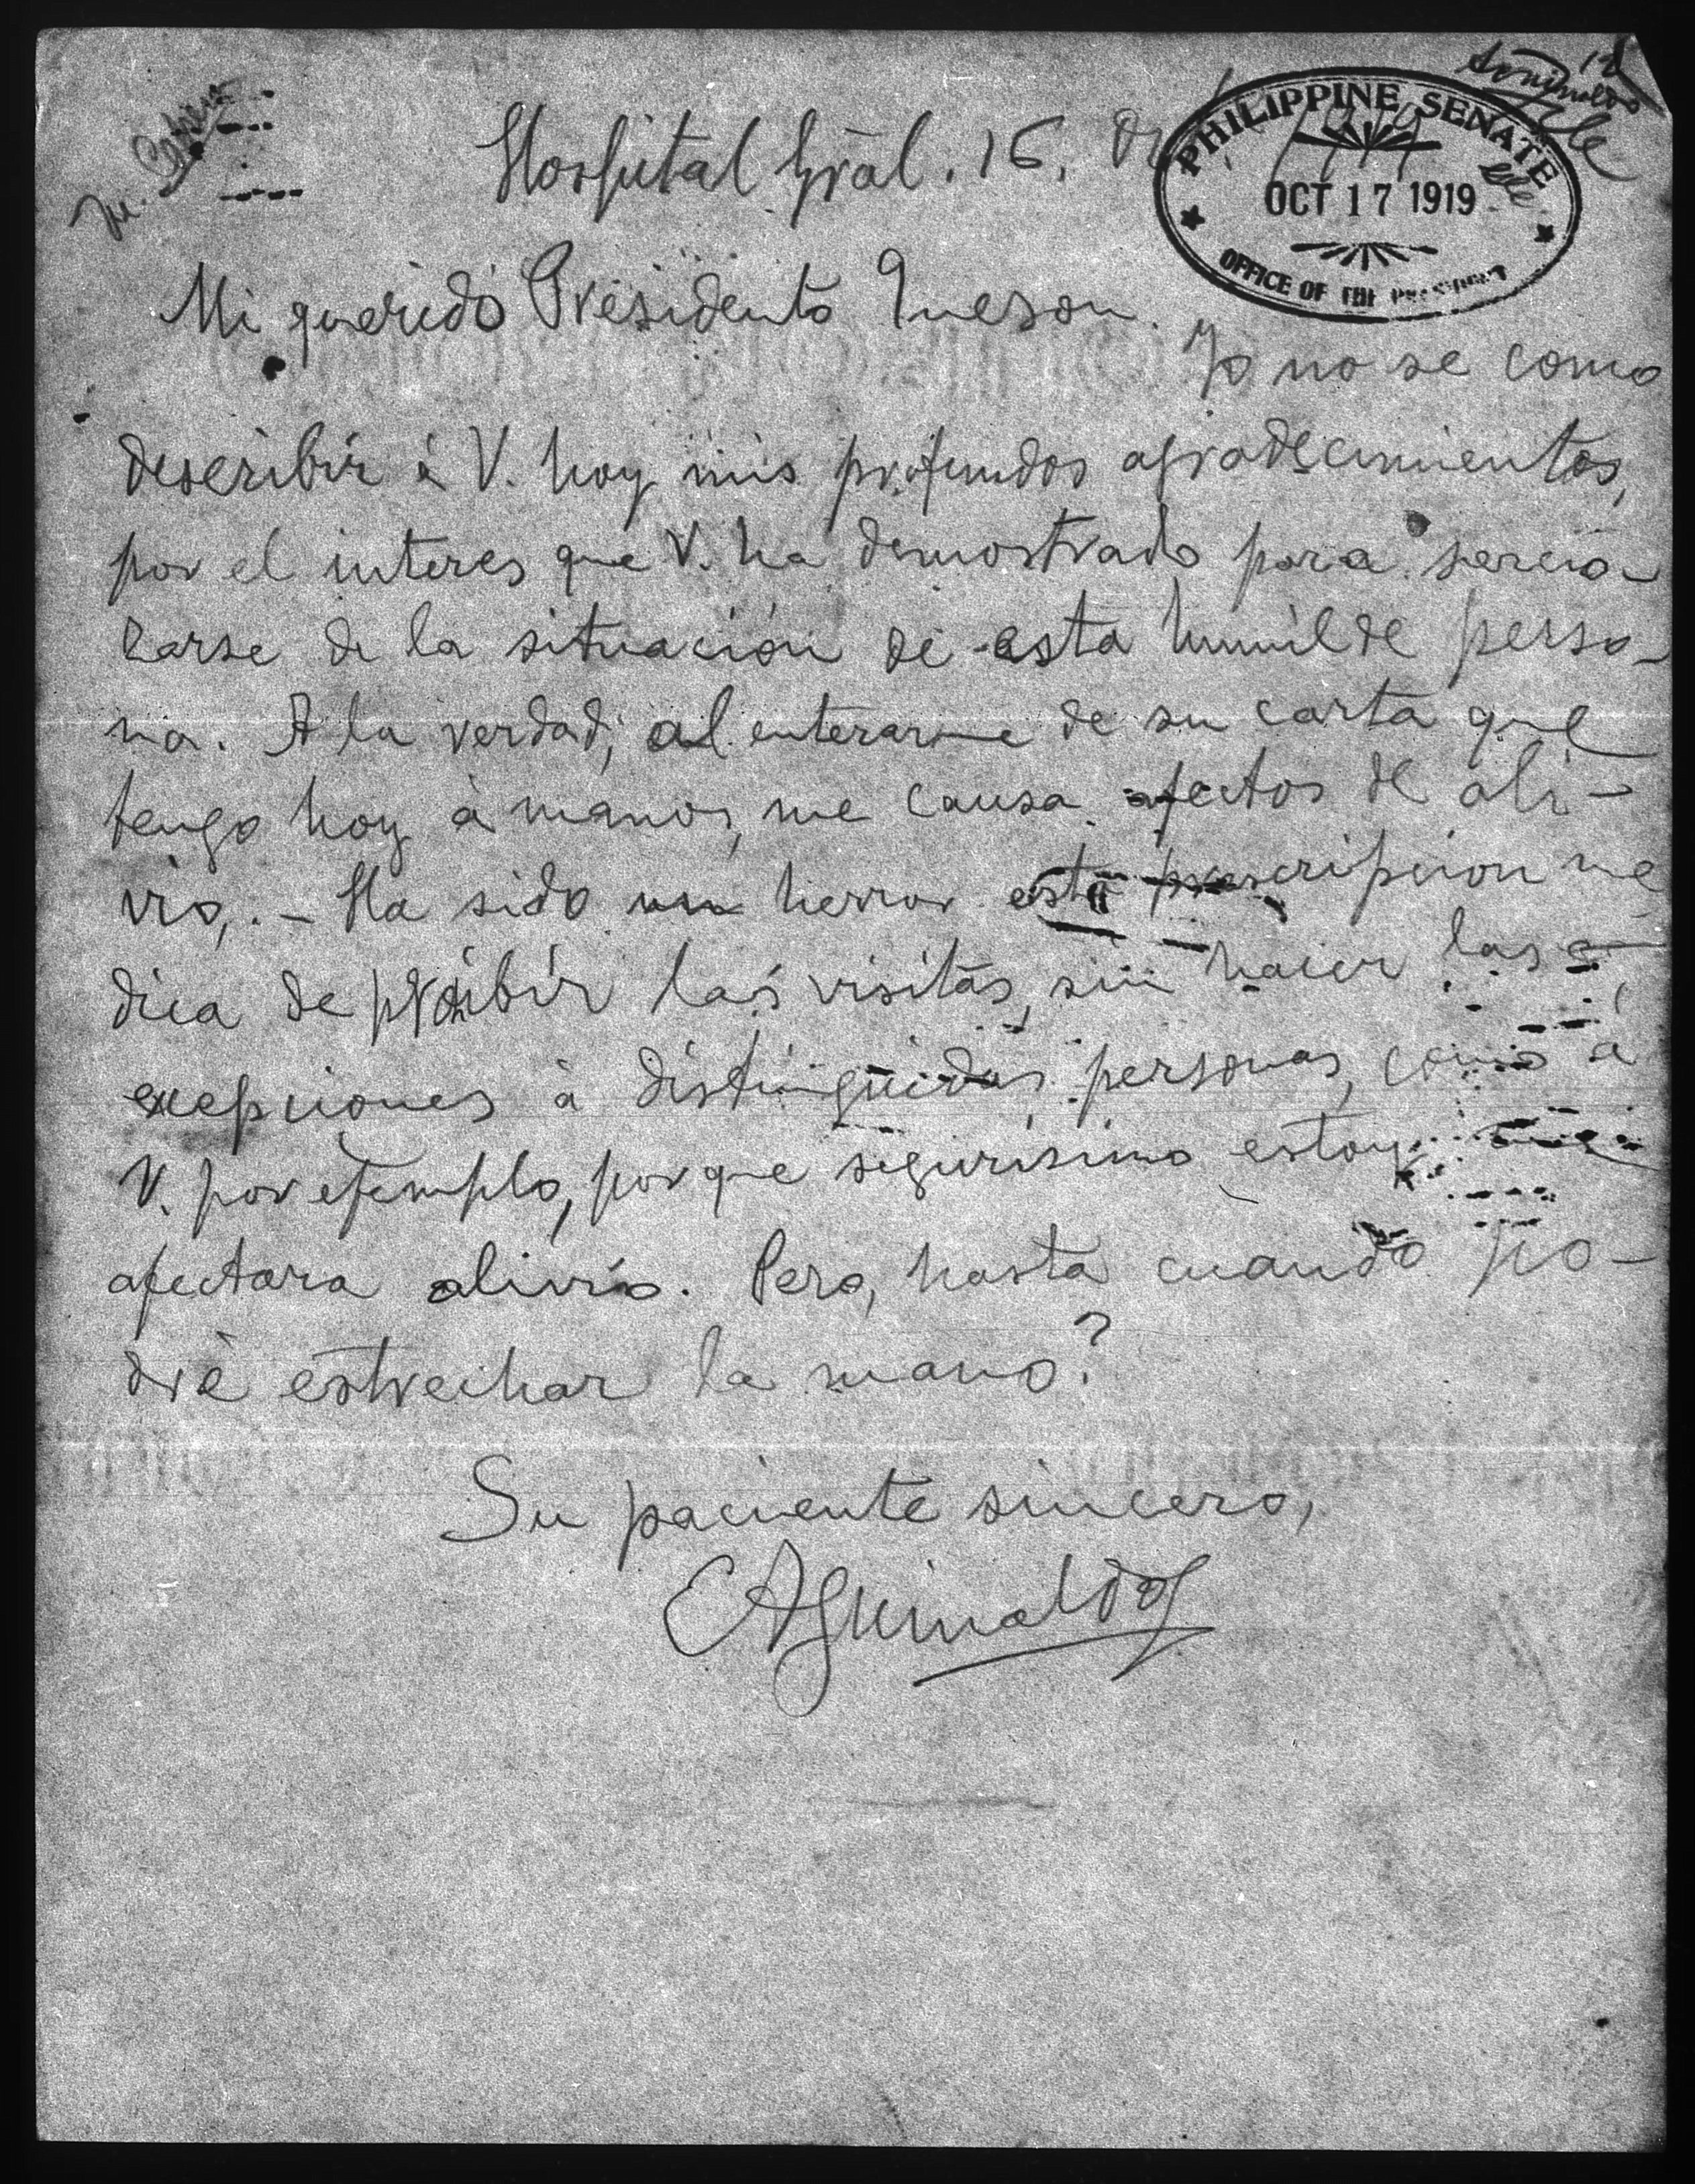 Hospital Gral. 16,
PHILIPPINE SENATE
OCT 17 1919
OFFICE OF THE PRESIDENT
Mi querido Presidente Queson.
Yo no se como
describir á V. hoy mis profundos agradecimientos,
por el interes que V. ha demostrado para sercio-
rarse de la situación de esta humilde perso-
na. A la verdad, al enterarme de su carta que
tengo hoy á manos, me causa afectos de ali-
vio,. - Ha sido un hierror esta prescripcion me
dica de proibir las visitas, sin hacer las
excepciones á distinguidas personas, como á
V. por ejemplo, porque segurisimo estoy me
afectara alivio. Pero, hasta cuando po-
dré estrechar la mano?
Su paciente sincero,
EAguinaldo